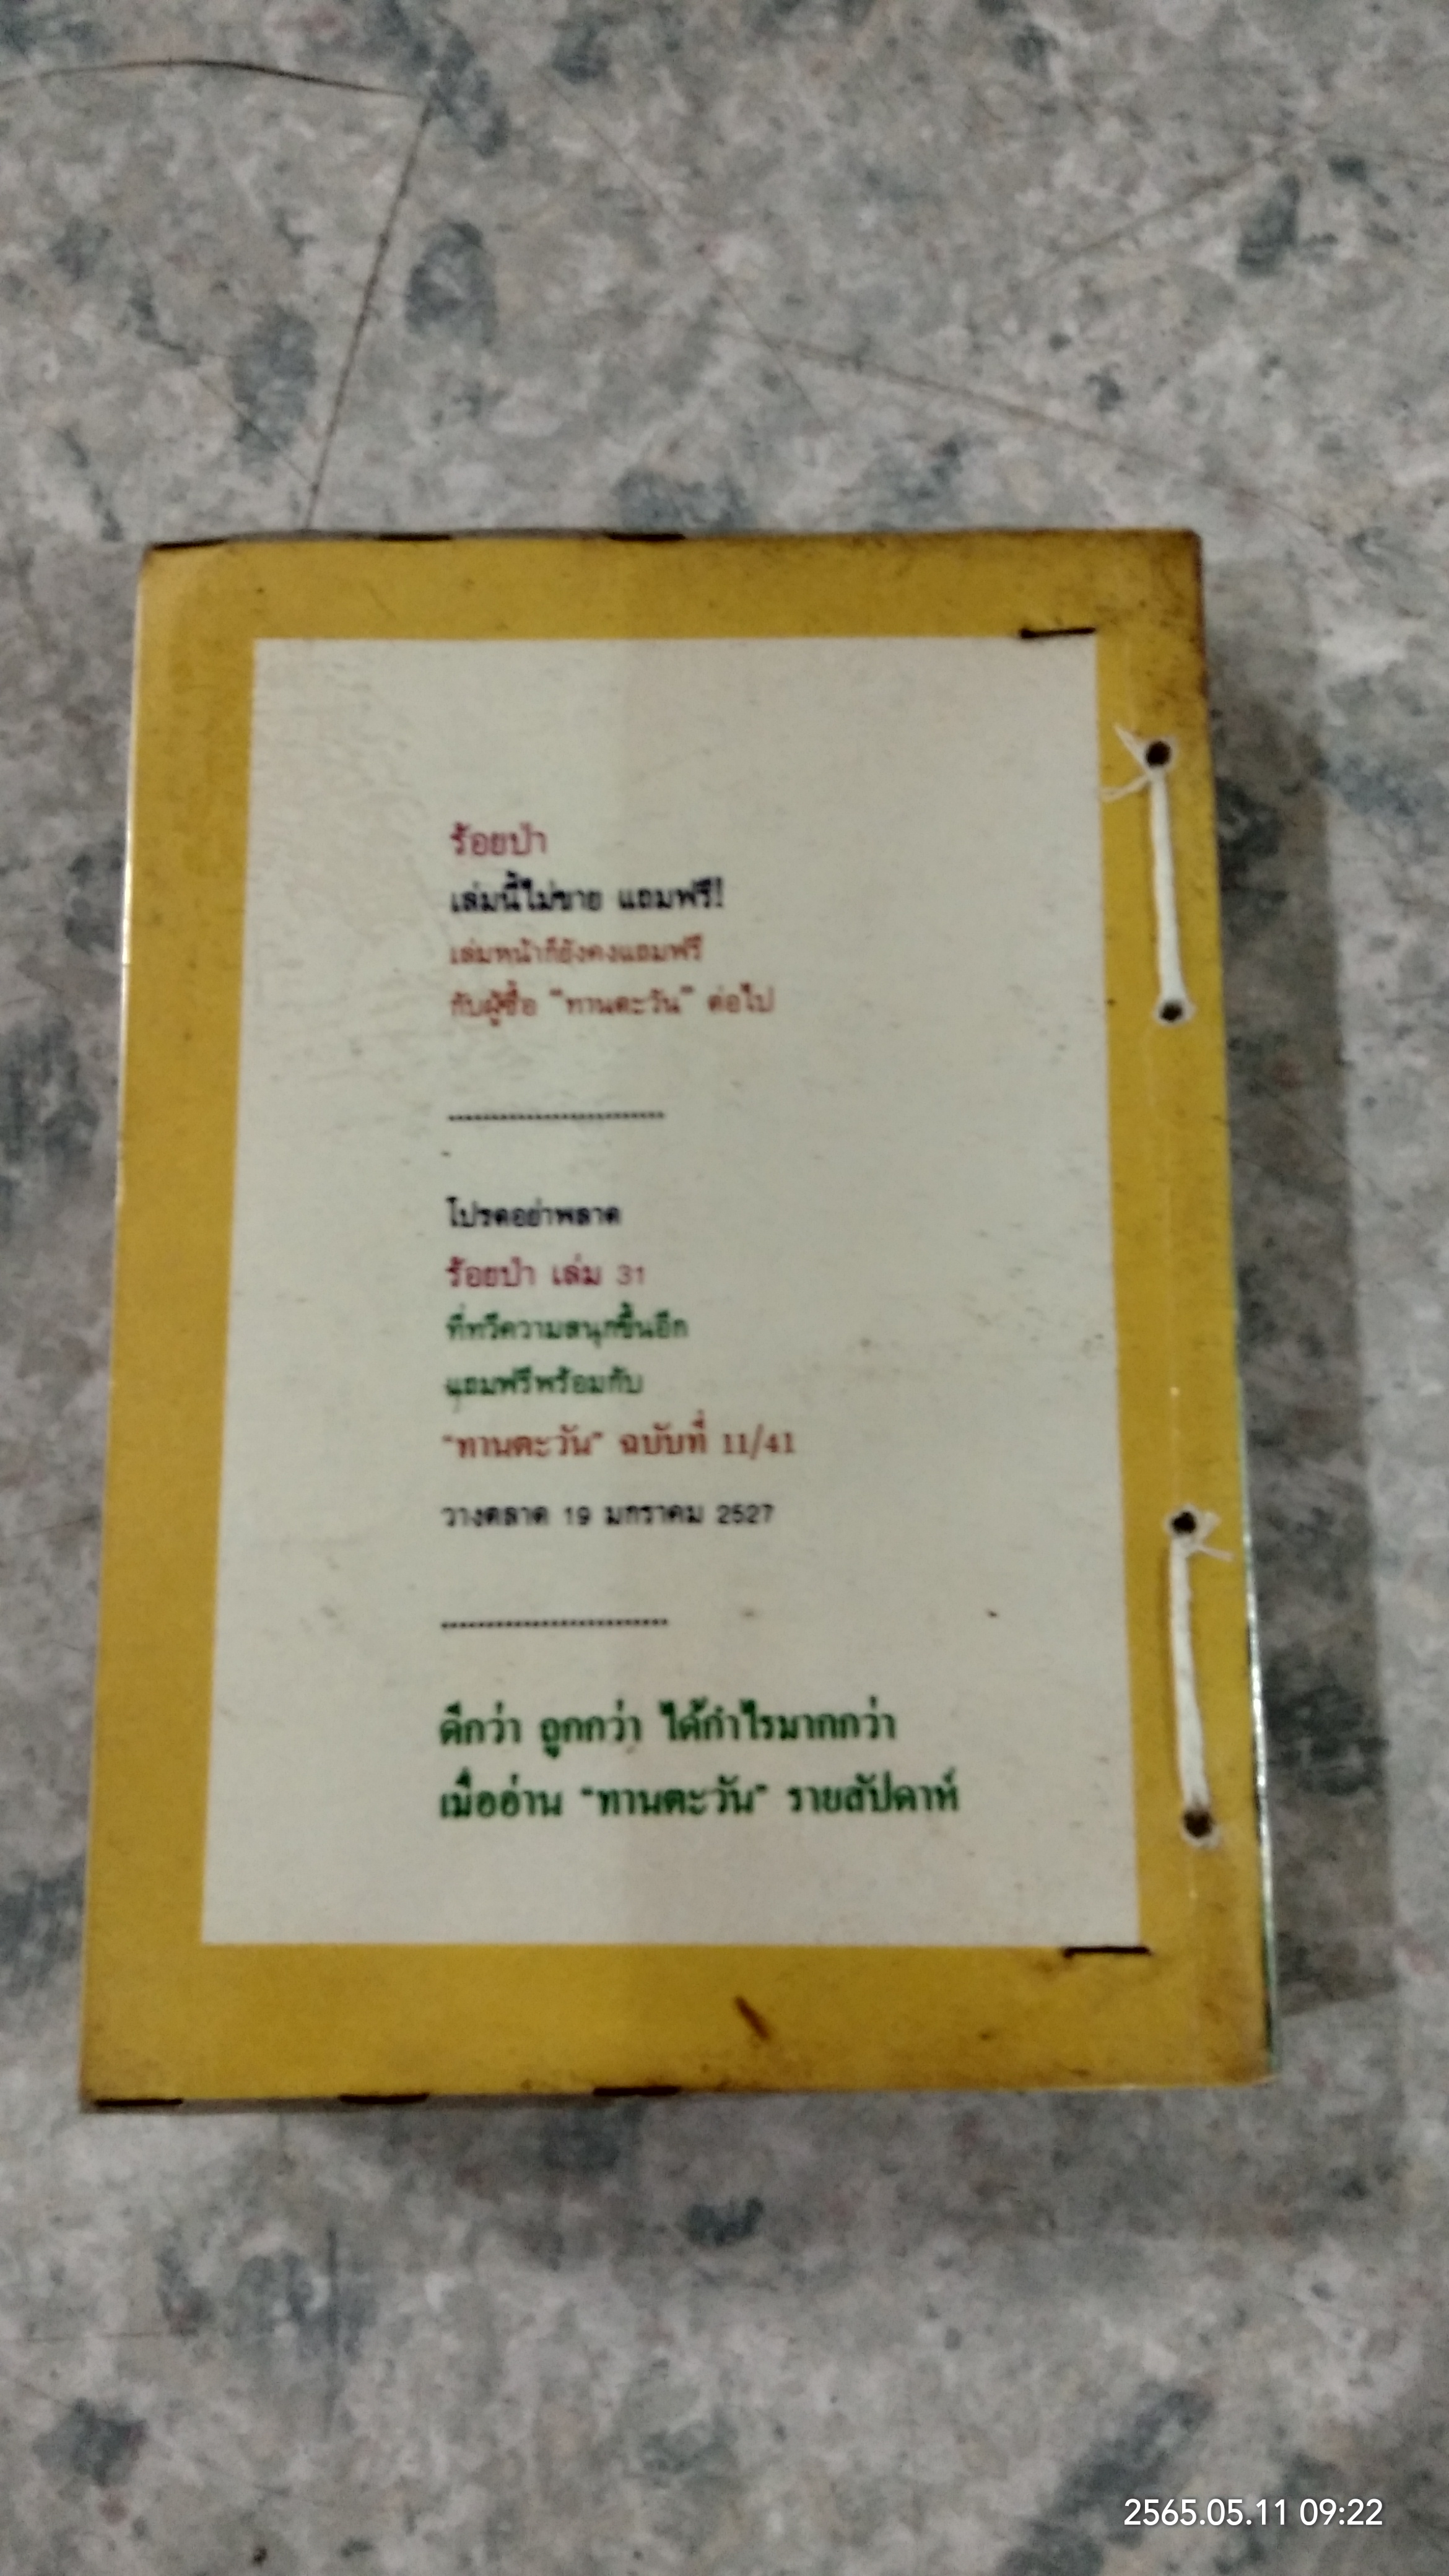 ร้อยป่า
เล่มนี้ไม่ขาย แถมฟรี!
เล่มหน้าก็ยังคงแถมฟรี
กับผู้ซื้อ "ทานตะวัน" ต่อไป
........................
โปรดอย่าพลาด
ร้อยป่า เล่ม 31
ที่ทวีความสนุกขึ้นอีก
แถมฟรีพร้อมกับ
"ทานตะวัน" ฉบับที่ 11/41
วางตลาด 19 มกราคม 2527
........................
ดีกว่า ถูกกว่า ได้กำไรมากกว่า
เมื่ออ่าน "ทานตะวัน" รายสัปดาห์
2565.05.11 09:22